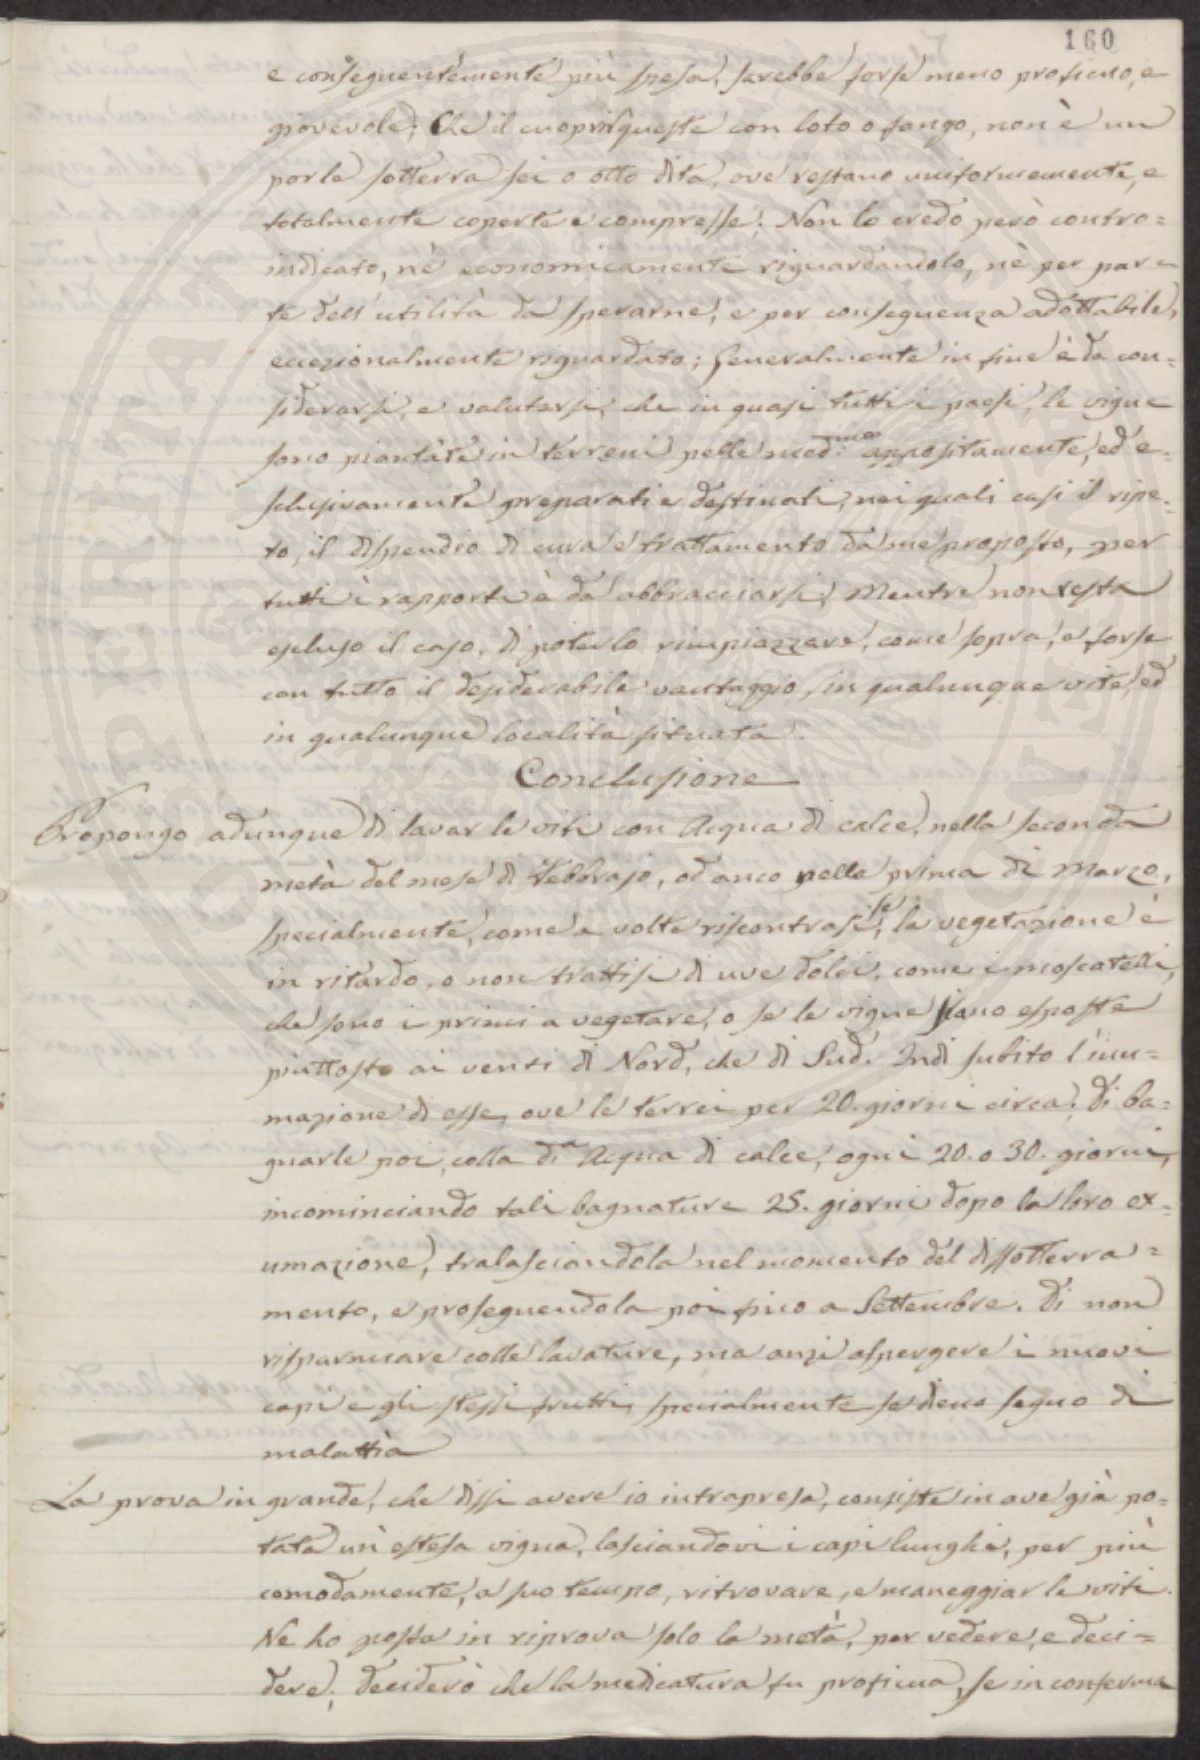 160
e conseguentemente più spesa, sarebbe forse meno proficuo, e
giovevole; Che il cuoprir queste con loto o fango, non è un
porle sotterra sei o otto dita, ove restano uniformemente, e
totalmente coperte e compresse; Non lo credo però contro=
indicato, nè economicamente riguardandolo, nè per par=
te dell'utilità da sperarne, e per conseguenza adottabile,
eccezionalmente riguardato; Generalmente in fine è da con=
siderarsi, e valutarsi, che in quasi tutti i paesi, le vigne
sono piantate in terreni pelle med:me appositamente, ed e=
sclusivamente preparati e destinati, nei quali casi il ripe=
to, il dispendio di cura e trattamento da me proposto, per
tutti i rapporti è da abbracciarsi; Mentre non resta
escluso il caso, di poterlo rimpiazzare, come sopra, e forse
con tutto il desiderabile vantaggio, in qualunque vite, ed
in qualunque località situata.
Conclusione
Propongo adunque di lavar le viti con Acqua di calce, nella seconda
metà del mese di Febbrajo, od anco nella prima di Marzo,
specialmente, come a volte riscontrasi, se la vegetazione è
in ritardo, o non trattisi di uve dolci, come i moscatelli,
che sono i primi a vegetare, o se le vigne siano esposte
piuttosto ai venti di Nord, che di Sud. Indi subito l'inu=
mazione di esse, ove le terrei per 20. giorni circa; Di ba=
gnarle poi, colla d:a Acqua di calce, ogni 20. o 30. giorni,
incominciando tali bagnature 25. giorni dopo la loro ex=
umazione, tralasciandola nel momento del dissotterra=
mento, e proseguendola poi fino a Settembre. Di non
risparmiare colle lavature, ma anzi aspergere i nuovi
capi e gli stessi frutti, specialmente se dieno segno di
malattia
La prova in grande, che dissi avere io intrapresa, consiste in ave già po=
tata un'estesa vigna, lasciandovi i capi lunghi, per più
comodamente, a suo tempo, ritrovare, e maneggiar le viti.
Ne ho posta in riprova solo la metà, per vedere, e deci=
dere; deciderò che la medicatura fu proficua, se in conferma